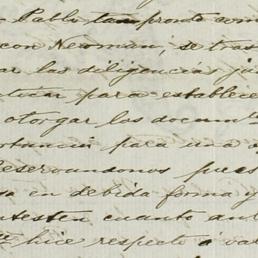 Pablo tan pronto com
con Newman, se tras
ar las diligencias ju
para establece
otorgar los docum
para una
Reservandonos pues
en debida forma y
ntesten cuanto an
hice respecto á va